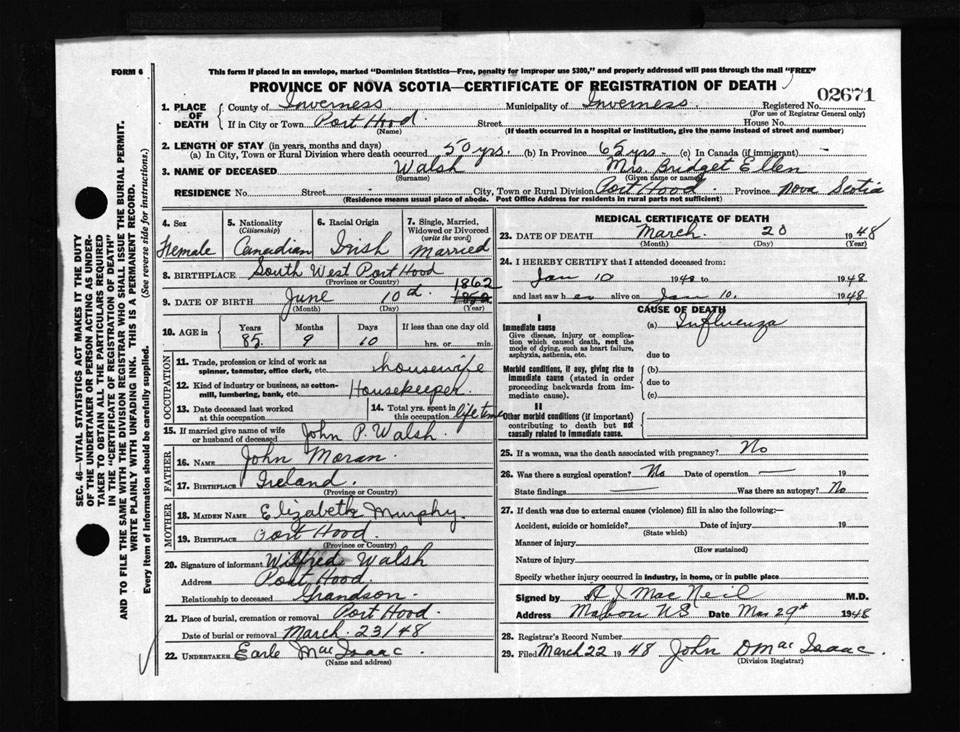 FORM 6
This form if placed in an envelope, marked "Dominion Statistics—Free, penalty for improper use $300," and properly addressed will pass through the mail "FREE"
PROVINCE OF NOVA SCOTIA—CERTIFICATE OF REGISTRATION OF DEATH
02671
1. PLACE OF DEATH
County of Inverness Municipality of Inverness Registered No.
(For use of Registrar General only)
If in City or Town Port Hood Street House No.
(Name) (If death occurred in a hospital or institution, give the name instead of street and number)
2. LENGTH OF STAY (in years, months and days)
(a) In City, Town or Rural Division where death occurred 50 yrs. (b) In Province 65 yrs. (c) In Canada (if immigrant)
3. NAME OF DECEASED Walsh Mrs. Bridget Ellen
(Surname) (Given name or names)
RESIDENCE No. Street City, Town or Rural Division Port Hood Province Nova Scotia
(Residence means usual place of abode. Post Office Address for residents in rural parts not sufficient)
4. Sex Female
5. Nationality (Citizenship) Canadian
6. Racial Origin Irish
7. Single, Married, Widowed or Divorced (write the word) Married
8. BIRTHPLACE South West Port Hood
(Province or Country)
1862
9. DATE OF BIRTH June 10th
(Month) (Day) (Year)
10. AGE in Years Months Days If less than one day old
85 9 10 hrs. or min.
OCCUPATION
11. Trade, profession or kind of work as spinner, teamster, office clerk, etc. housewife
12. Kind of industry or business, as cotton-mill, lumbering, bank, etc. Housekeeper
13. Date deceased last worked at this occupation
14. Total yrs. spent in this occupation life time
15. If married give name of wife or husband of deceased John P. Walsh.
FATHER
16. NAME John Moran
17. BIRTHPLACE Ireland
(Province or Country)
MOTHER
18. MAIDEN NAME Elizabeth Murphy.
19. BIRTHPLACE Port Hood
(Province or Country)
20. Signature of informant Wilfred Walsh
Address Port Hood.
Relationship to deceased Grandson
21. Place of burial, cremation or removal Port Hood.
Date of burial or removal March 23/48
22. UNDERTAKER Earle MacIsaac
(Name and address)
MEDICAL CERTIFICATE OF DEATH
23. DATE OF DEATH March 20 1948
(Month) (Day) (Year)
24. I HEREBY CERTIFY that I attended deceased from:
Jan 10 19 to 1948
and last saw her alive on Jan 10. 1948
CAUSE OF DEATH
I
Immediate cause (a) Influenza
Give disease, injury or complication which caused death, not the mode of dying, such as heart failure, asphyxia, asthenia, etc.
due to
Morbid conditions, if any, giving rise to immediate cause (stated in order proceeding backwards from immediate cause).
(b)
due to
(c)
II
Other morbid conditions (if important) contributing to death but not causally related to immediate cause.
25. If a woman, was the death associated with pregnancy? No
26. Was there a surgical operation? No Date of operation — 19
State findings — Was there an autopsy? No
27. If death was due to external causes (violence) fill in also the following:—
Accident, suicide or homicide? Date of injury 19
(State which)
Manner of injury
(How sustained)
Nature of injury
Specify whether injury occurred in industry, in home, or in public place
Signed by A J MacNeil M.D.
Address Mabou N S Date Mar 29th 1948
28. Registrar's Record Number
29. Filed March 22 1948 John D MacIsaac
(Division Registrar)
SEC. 46—VITAL STATISTICS ACT MAKES IT THE DUTY
OF THE UNDERTAKER OR PERSON ACTING AS UNDER-
TAKER TO OBTAIN ALL THE PARTICULARS REQUIRED
IN THE "CERTIFICATE OF REGISTRATION OF DEATH"
AND TO FILE THE SAME WITH THE DIVISION REGISTRAR WHO SHALL ISSUE THE BURIAL PERMIT.
WRITE PLAINLY WITH UNFADING INK. THIS IS A PERMANENT RECORD.
Every item of information should be carefully supplied. (See reverse side for instructions.)